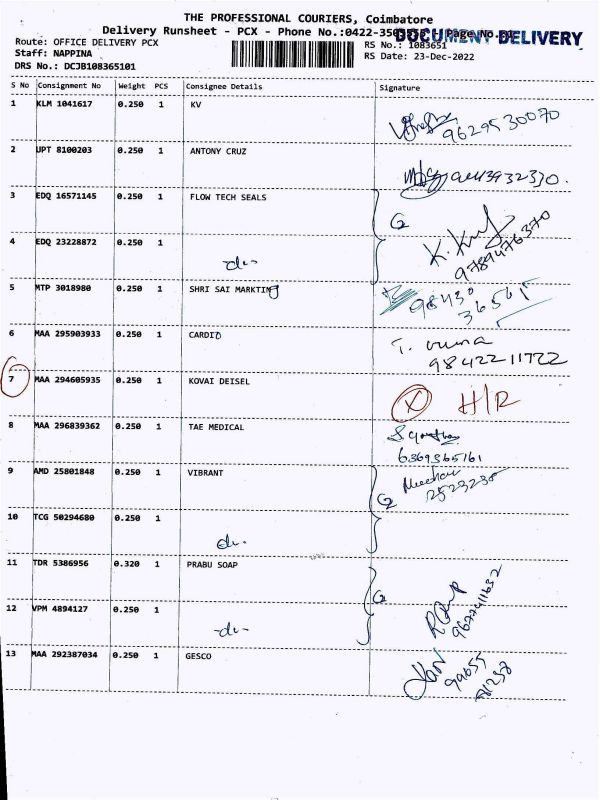 THE PROFESSIONAL COURIERS, Coimbatore
Delivery Runsheet - PCX - Phone No.:0422-
DOCUMENT DELIVERY
Route: OFFICE DELIVERY PCX
RS No.: 1083651
Staff: NAPPINA
RS Date: 23-Dec-2022
DRS No.: DCJB108365101
S No Consignment No Weight PCS Consignee Details Signature
1 KLM 1041617 0.250 1 KV
9629530070
2 UPT 8100203 0.250 1 ANTONY CRUZ
3 EDQ 16571145 0.250 1 FLOW TECH SEALS
4 EDQ 23228872 0.250 1
K. 9789476370
5 MTP 3018980 0.250 1 SHRI SAI MARKTING
98430
36561
6 MAA 295903933 0.250 1 CARDIO
T.
9842211722
7 MAA 294605935 0.250 1 KOVAI DEISEL X H/R
8 MAA 296839362 0.250 1 TAE MEDICAL
6369365161
9 AMD 25801848 0.250 1 VIBRANT
2523238
10 TCG 50294680 0.250 1
11 TDR 5386956 0.320 1 PRABU SOAP
12 VPM 4894127 0.250 1
9677411632
13 MAA 292387034 0.250 1 GESCO
99655
81238